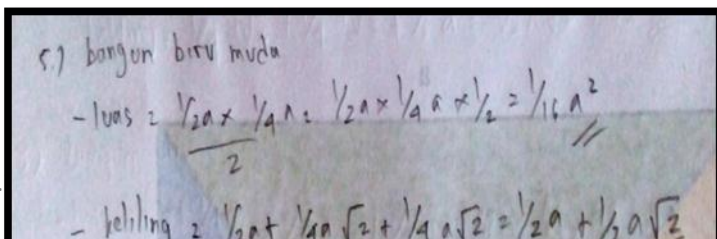 5.) bangun biru muda
- luas = ½a × ¼a = ½a × ¼a × ½ = 1/16 a²
2
- keliling = ½a + ¼a√2 + ¼a√2 = ½a + ½a√2